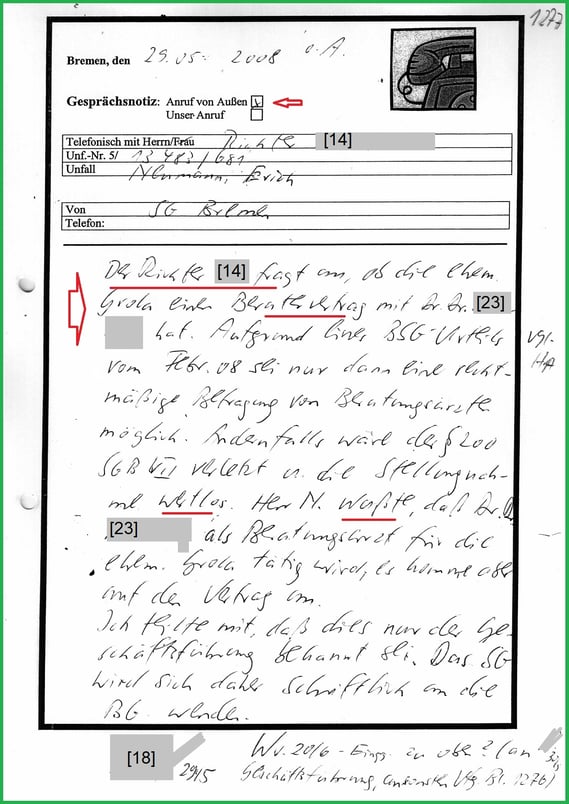 1277
Bremen, den 29.05. 2008 o.A.
Gesprächsnotiz: Anruf von Außen
Unser Anruf
Telefonisch mit Herrn/Frau Richter [14]
Unf.-Nr. 5/ 13 483/081
Unfall Neumann, Erich
Von SG Bremen
Telefon:
Der Richter [14] fragt an, ob die ehem.
Grola einen Beratervertrag mit Dr. Dr. [23]
hat. Aufgrund eines BSG-Urteils
vom Febr. 08 sei nur dann eine recht-
mäßige Befragung von Beratungsärzte
möglich. Andernfalls wäre der § 200
SGB VII verletzt u. die Stellungnah-
me wertlos. Herr N. wußte, daß Dr. D.
[23] als Beratungsarzt für die
ehem. Grola tätig wird, es komme aber
auf den Vertrag an.
Ich teilte mit, daß dies nur der Ge-
schäftsführung bekannt sei. Das SG
wird sich daher schriftlich an die
BG wenden.
vgl.
HA
[18] 29/5
Wv. 20/6 - Eing. zu oben? (an
Geschäftsführung, ansonsten Vfg Bl. 1276)